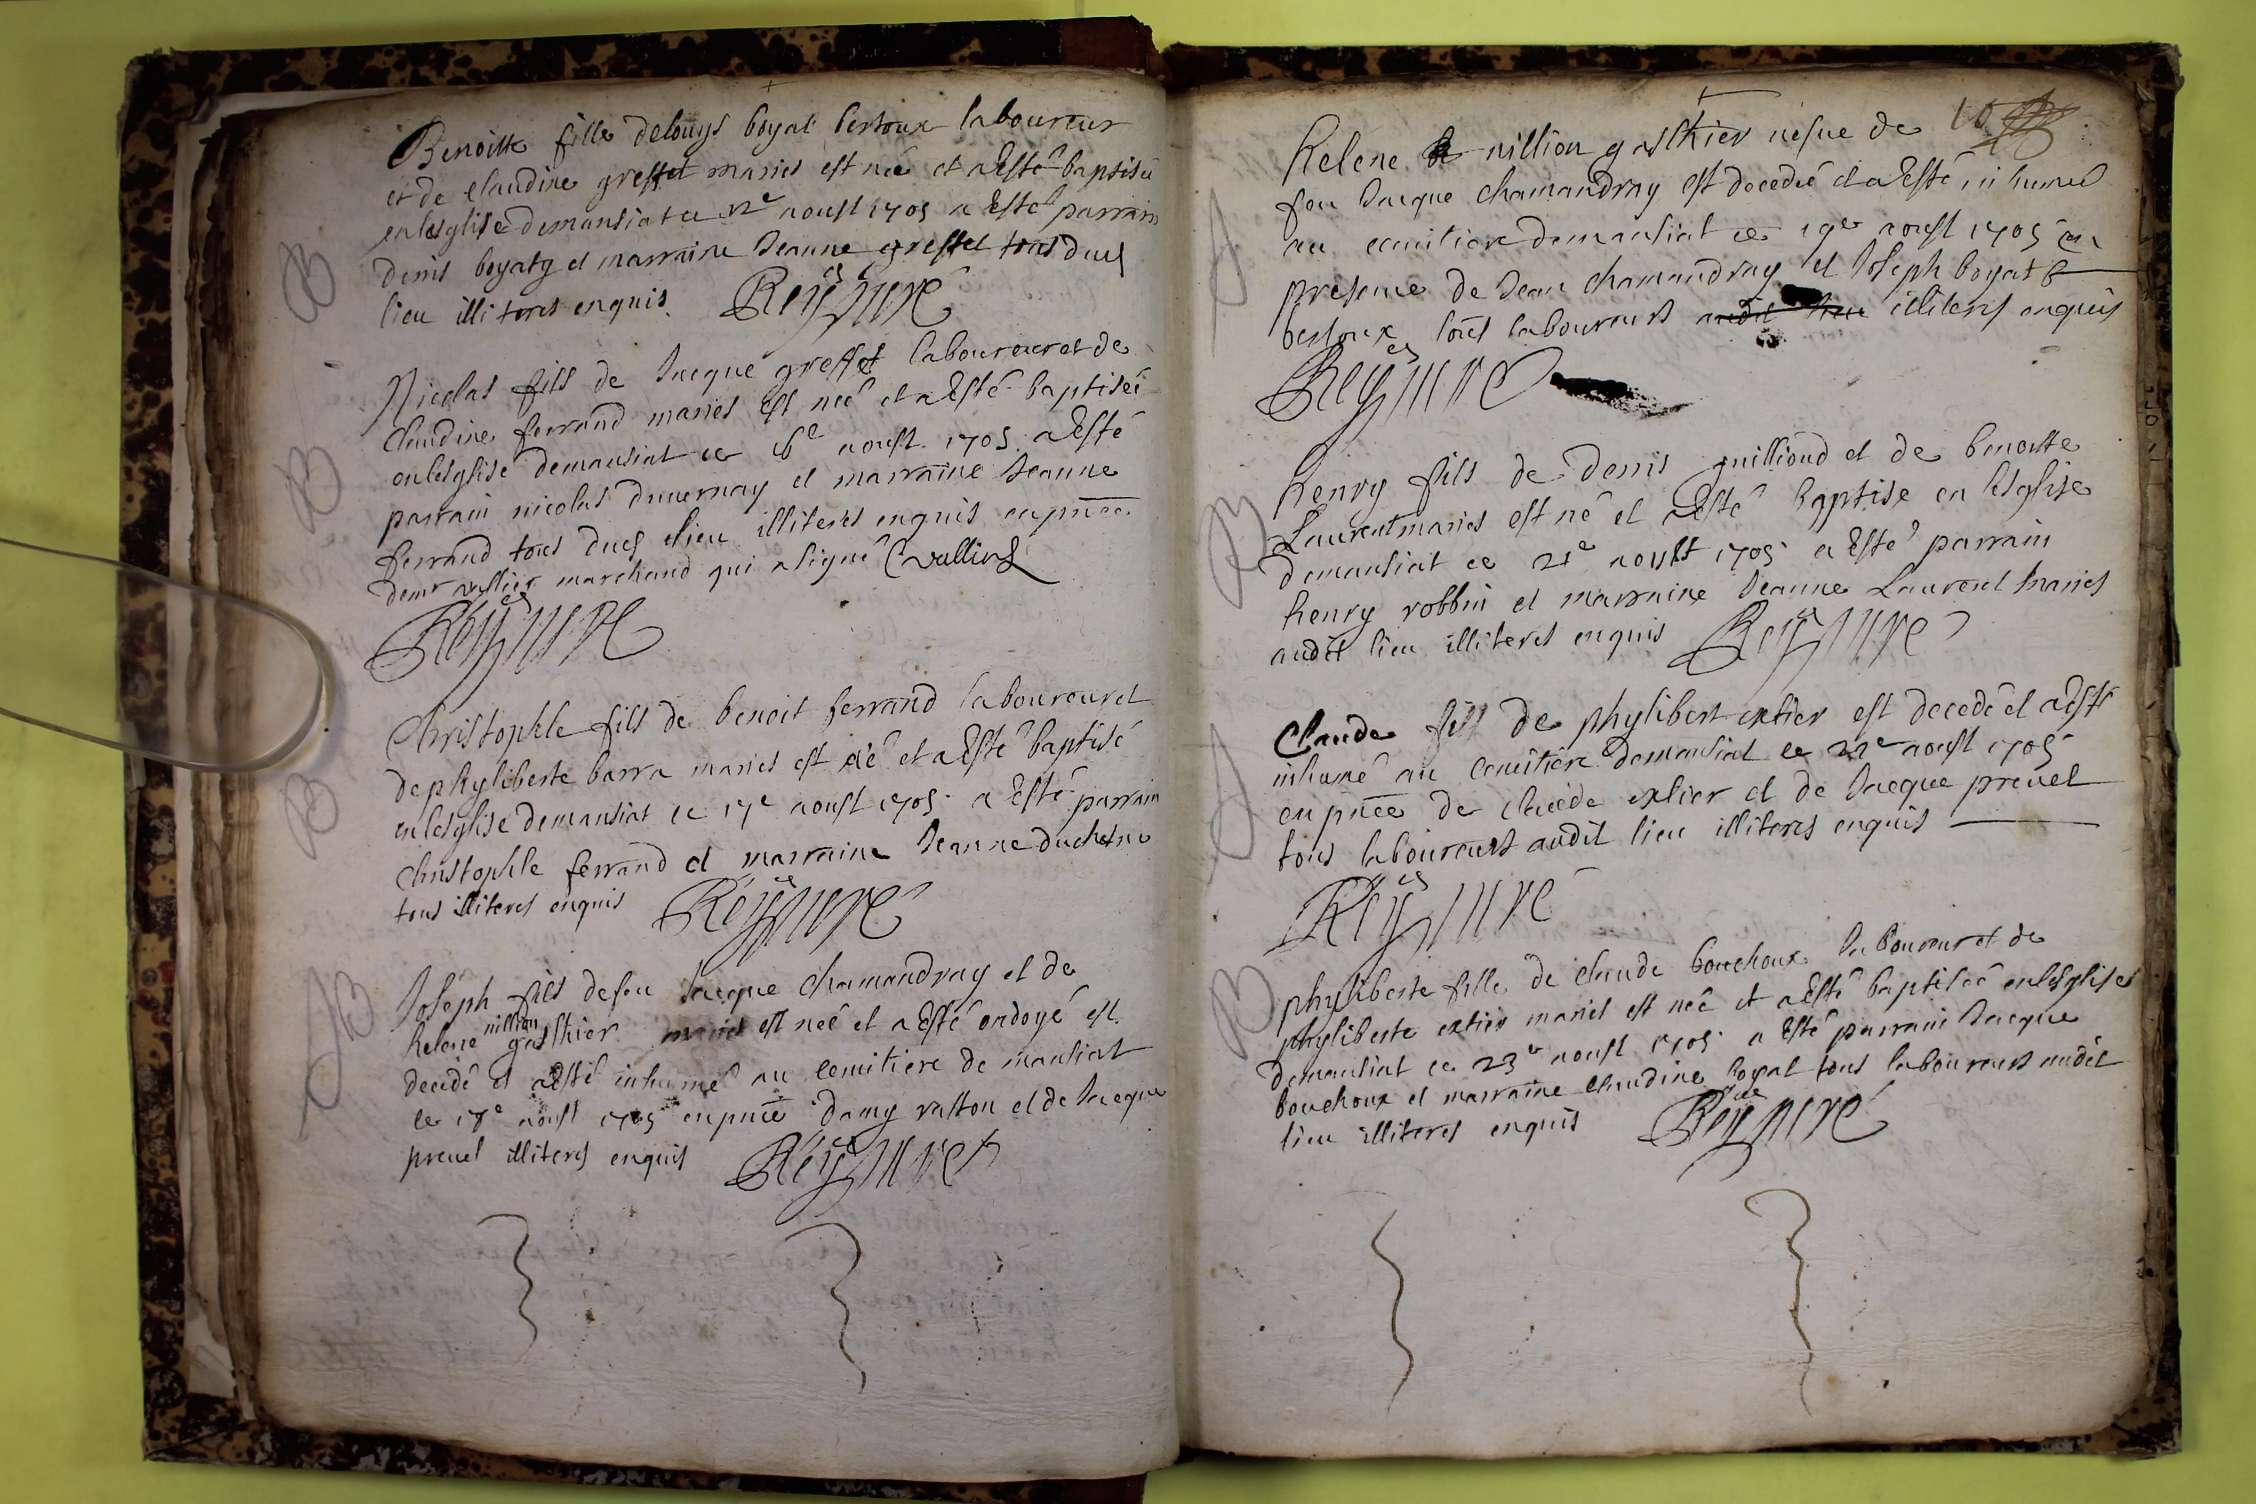 Benoitte fille delouys boyat bertoux laboureur
et de claudine greffet mariés est née et a Esté baptisée
en lesglise demantiat ce 12e aoust 1705 a Esté parrain
denis boyat et marraine Jeanne greffet tous dud
lieu illiteres enquis. Reÿ curé
B
Nicolas fils de Jacque greffet laboureur et de
claudine ferrand mariés Est neé et a Esté baptiseé
en lesglise demantiat ce aoust 1705 a Esté
parrain nicolas duuernay et marraine Jeanne
ferrand tous dud lieu illiteres enquis en pnce
de mr vallier marchand qui a signé Cvallier
Reÿ curé
B
Christophle fils de benoit ferrand laboureur et
de phyliberte barra mariés est né et a Esté baptisé
en lesglise demantiat ce 17e aoust 1705 a Esté parrain
christophle ferrand et marraine Jeanne duchesne
tous illiteres enquis Reÿ curé
B
Joseph fils defeu Jacque chamandray et de
nillion
helene gasthier mariés est neé et a Esté ondoyé est
decedé et a Esté inhumé au cemitiere de mantiat
ce 18e aoust 1705 en pnce damy ratton et de Jacque
preuel illiteres enquis Reÿ curé
B
10
helene nillion gasthier vefue de
feu Jacque chamandray est decedeé et a Esté inhumeé
au cemitiere demantiat ce 19e aoust 1705 en
presence de Jean chamandray et Joseph boyat
bertoux tous laboureurs audit lieu illiteres enquis
Reÿ curé
henry fils de denis guillioud et de benoitte
Laurent mariés est né et a Esté baptise en lesglise
demantiat ce 21e aoust 1705 a Esté parrain
henry robbin et marraine Jeanne Laurent mariés
audit lieu illiteres enquis Reÿ curé
B
Claude fils de phylibert extier est decedé et a Esté
inhumé au cemitiere demantiat ce 22e aoust 1705
en pnce de claude extier et de Jacque preuel
tous laboureurs audit lieu illiteres enquis
Reÿ curé
phyliberte fille de claude bouchoux laboureur et de
phyliberte extier mariés est neé et a Esté baptiseé en lesglise
demantiat ce 23e aoust 1705 a Esté parrain Jacque
bouchoux et marraine claudine boyat tous laboureurs audit
lieu illiteres enquis Reÿ curé
B